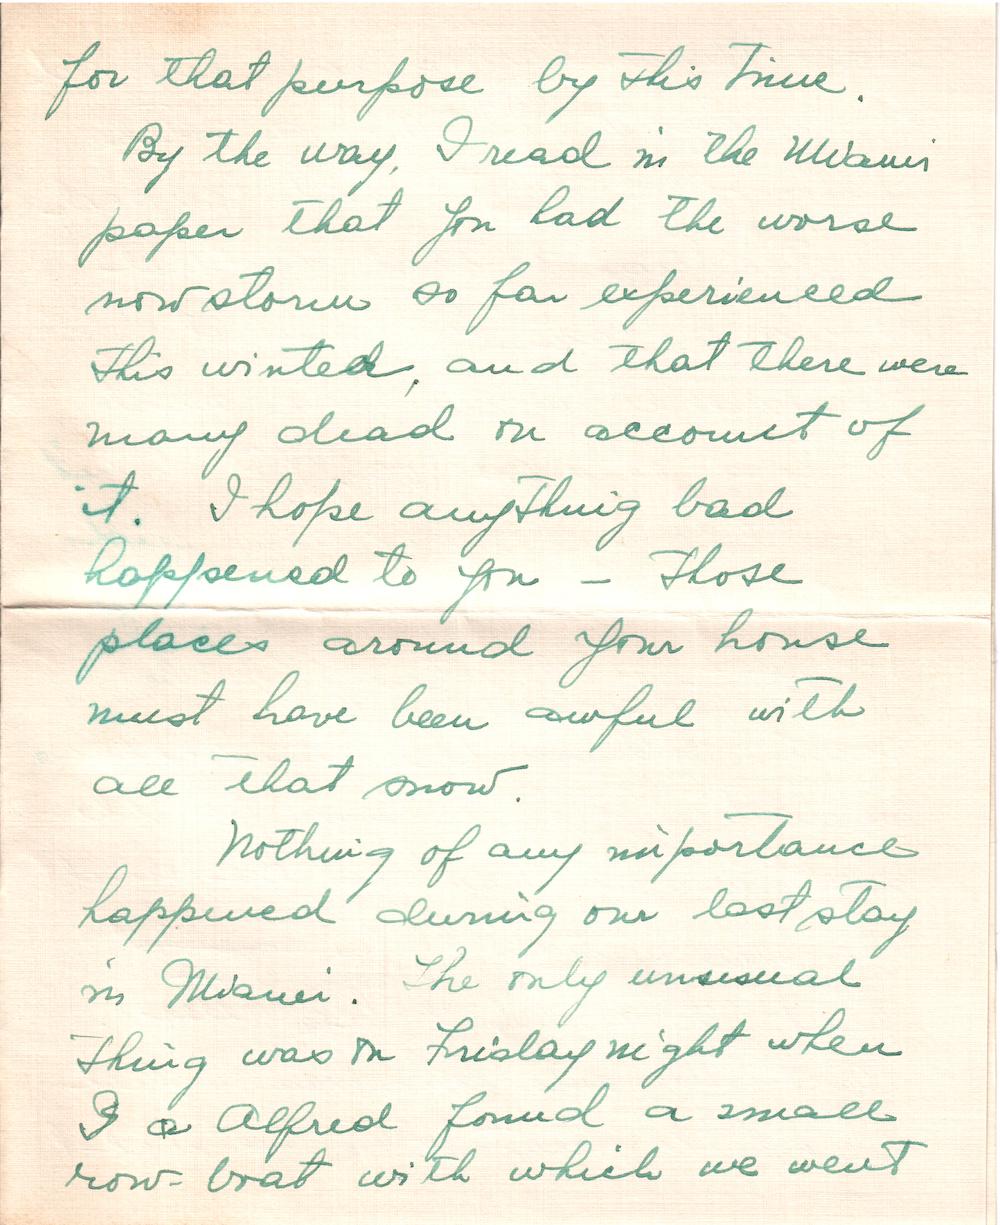 for that purpose by this time.
By the way, I read in the Miami
paper that you had the worse
now storm so far experienced
this winted, and that there were
many dead on account of
it. I hope anything bad
happened to you – Those
places around your house
must have been awful with
all that snow.
Nothing of any importance
happened during our last stay
in Miami. The only unusual
thing was on Friday night when
I a Alfred found a small
row-boat with which we went